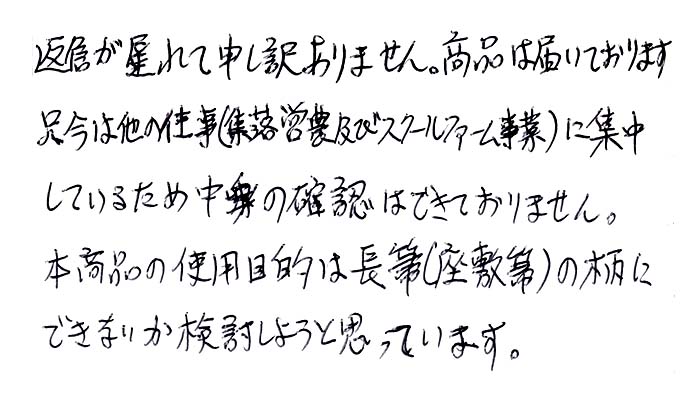 返信が遅れて申し訳ありません。商品は届いております
只今は他の仕事(集落営農及びスクールファーム事業)に集中
しているため中身の確認はできておりません。
本商品の使用目的は長箒(座敷箒)の柄に
できないか検討しようと思っています。